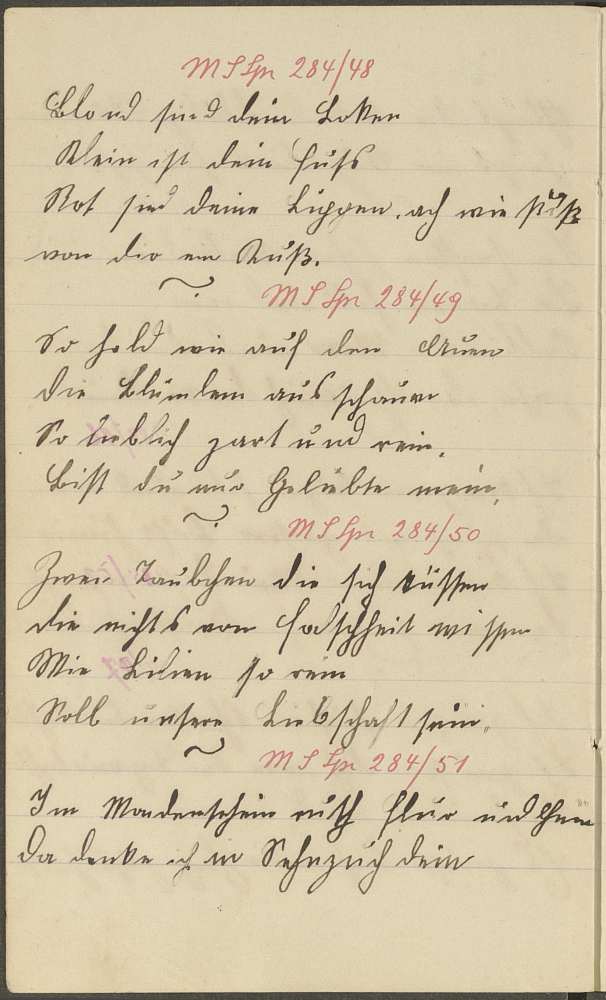 M S Spr 284/48
Blond sind dein Loken
Klein ist dein Fuss
Rot sind deine Lippen. ach wie süß
von dir ein Kuß.
M S Spr 284/49
So hold wie auf den Auen
die Blümlein ausschauen
So lieblich zart und rein,
bist du nur Geliebte mein,
M S Spr 284/50
Zwei Taubchen die sich küssen
die nichts von Falschheit wissen
Wie Lilien so rein
Soll unsere Liebschaft sein.
M S Spr 284/51
Im Mondenschein ruth Flur und
Da denke ich in dein